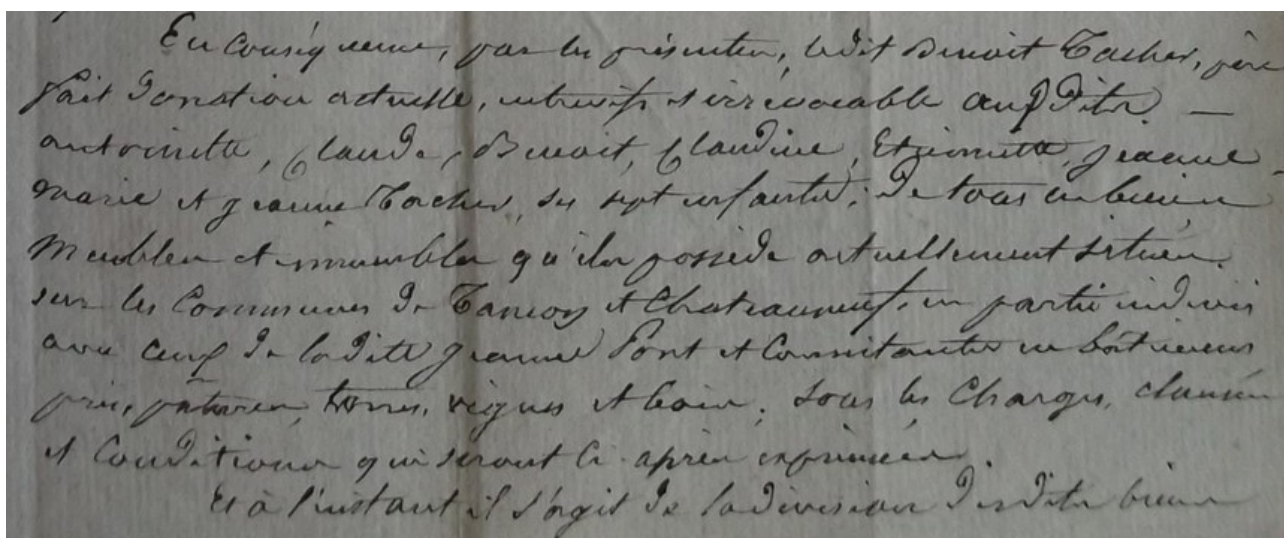 En conséquence, par les présentes, ledit Benoit Tacher, père
fait donation actuelle, entrevifs & irrévocable auxdits —
antoinette, Claude, Benoit, Claudine, Etiennette, jeanne
marie et jeanne Tacher, ses sept enfants; de tous les biens
Meubles et immeubles qu'il possède actuellement situés
sur les Communes de Tancon et Chateauneuf, en partie indivis
avec ceux de ladite jeanne Pont et Consistantes en batiments
prés, patures, terres, vignes et bois, sous les charges, clauses
et Conditions qui seront ci après exprimées.
Et à l'instant il s'agit de la division desdits biens